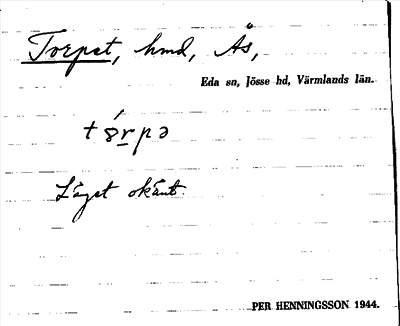 Torpet, hmd, Ås,
Eda sn, Jösse hd, Värmlands län.
Läget okänt.
PER HENNINGSSON 1944.